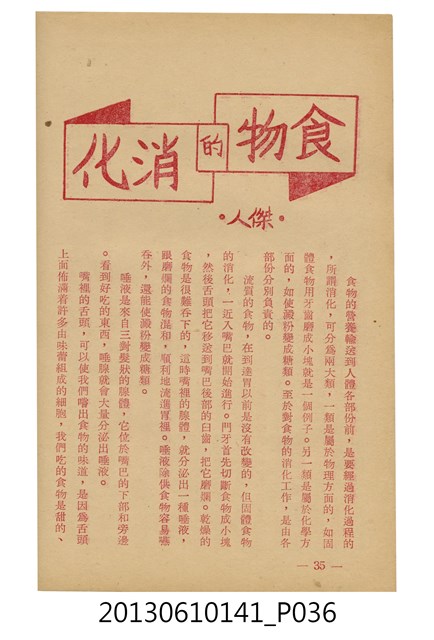 食物的消化
·傑人·
食物的營養輸送到人體各部份前，是要經過消化過程的
，所謂消化，可分為兩大類，一類是屬於物理方面的，如固
體食物用牙齒磨成小塊就是一個例子。另一類是屬於化學方
面的，如使澱粉變成糖類。至於對食物的消化工作，是由各
部份分別負責的。
流質的食物，在到達胃以前是沒有改變的，但固體食物
的消化，一近入嘴巴就開始進行。門牙首先切斷食物成小塊
，然後舌頭把它移送到嘴巴後部的臼齒，把它磨爛。乾燥的
食物是很難吞下的，這時嘴裡的腺體，就分泌出一種唾液，
跟磨爛的食物混和，順利地流進胃裡。唾液除供食物容易嚥
吞外，還能使澱粉變成糖類。
唾液是來自三對髮狀的腺體，它位於嘴巴的下部和旁邊
。看到好吃的東西，唾腺就會大量分泌出唾液。
嘴裡的舌頭，可以使我們嚐出食物的味道，是因爲舌頭
上面佈滿着許多由味蕾組成的細胞，我們吃的食物是甜的、
— 35 —
20130610141_P036